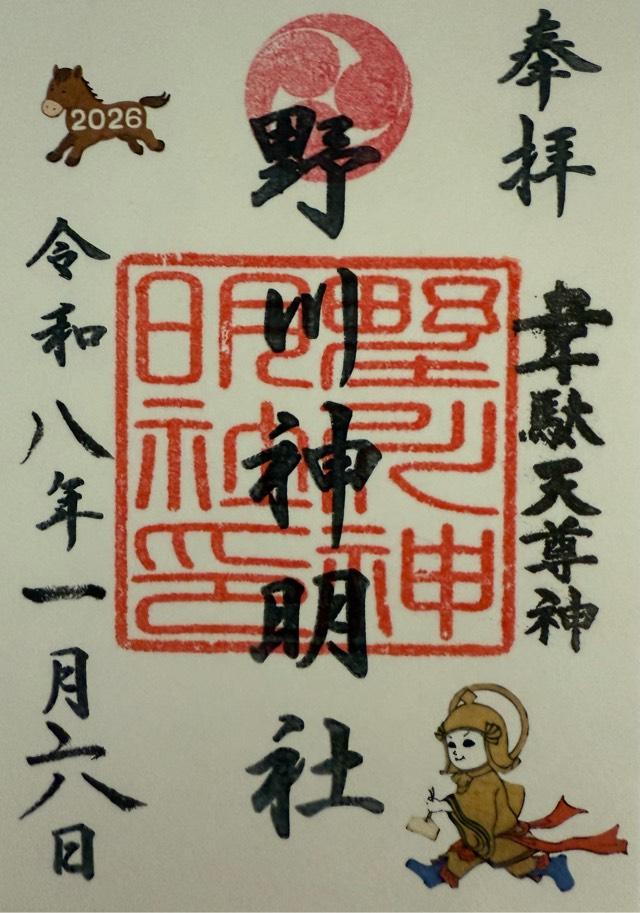 奉拝
韋駄天尊神
野川神明社
野川神明社印
令和八年一月六日
2026